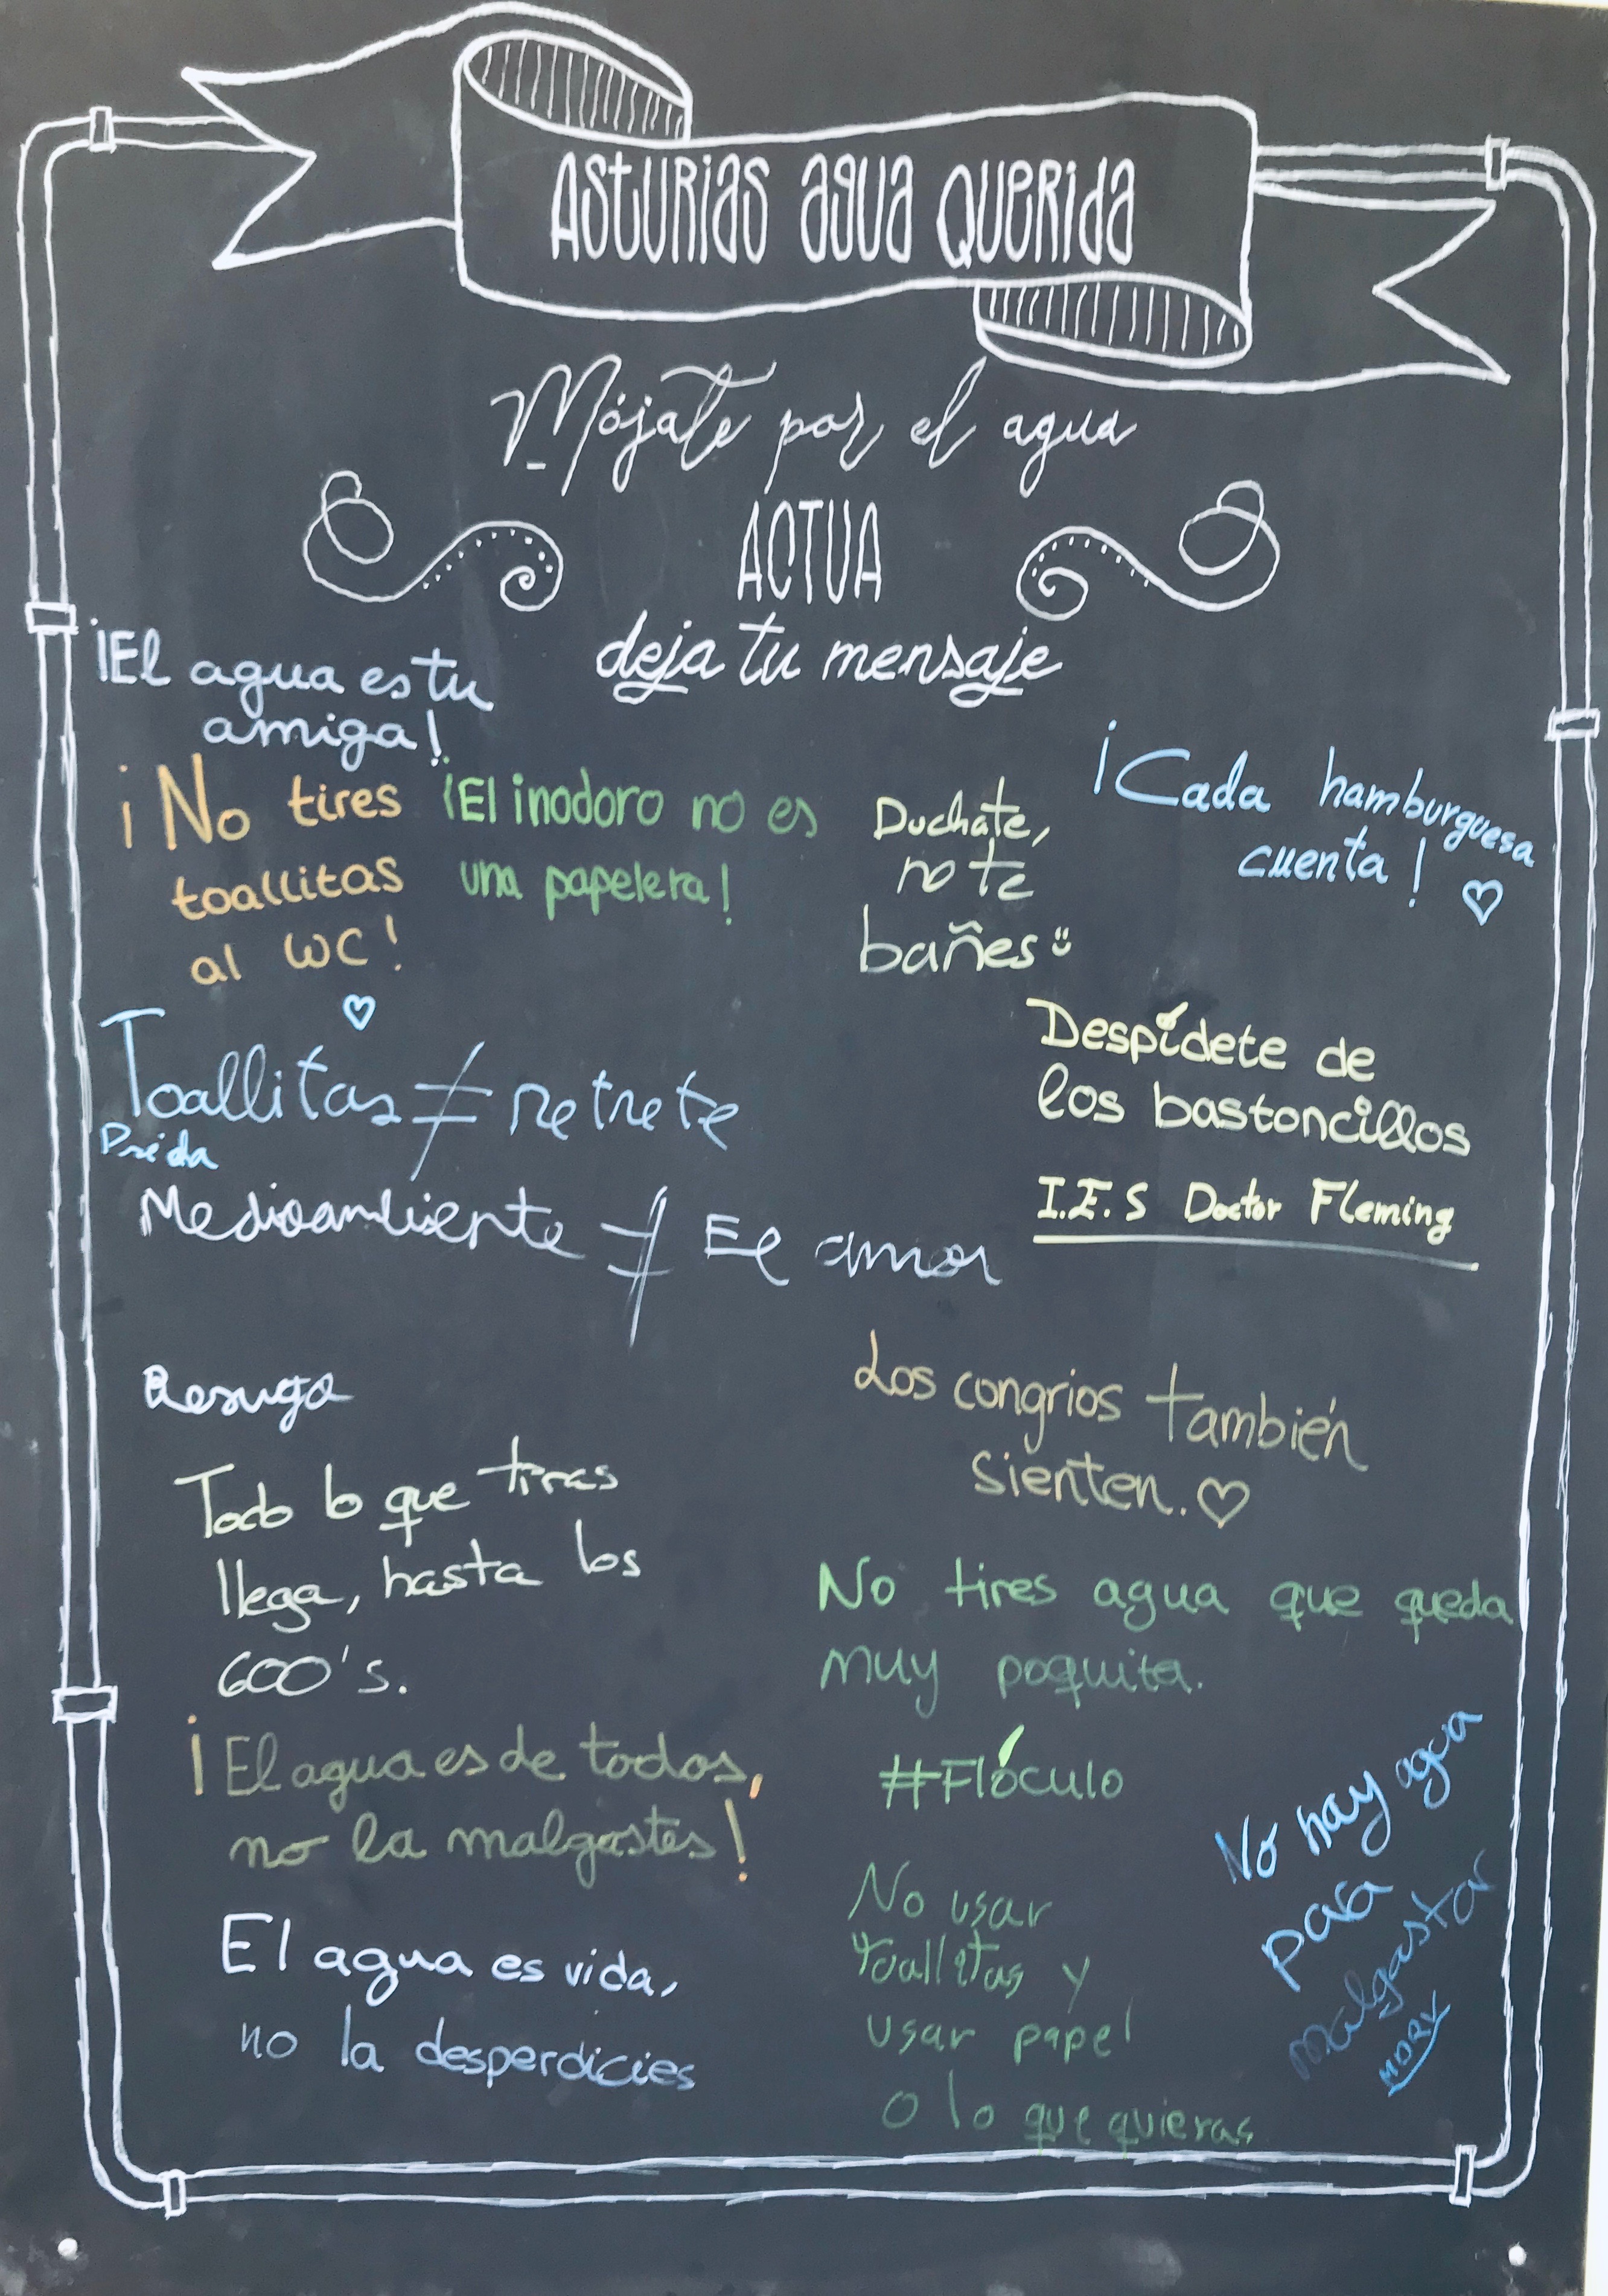 Asturias agua Querida
Mójate por el agua
ACTUA
deja tu mensaje
¡El agua es tu
amiga!
¡No tires
toallitas
al WC!
¡El inodoro no es
una papelera!
Duchate,
no te
bañes
¡Cada hamburguesa
cuenta!
Toallitas ≠ retrete
Prida
Despídete de
los bastoncillos
I.E.S Doctor Fleming
Medioambiente ≠ El amor
Los congrios también
sienten.
Todo lo que tiras
llega, hasta los
600's.
No tires agua que queda
muy poquita.
¡El agua es de todos,
no la malgastes!
#Flóculo
No hay agua
para
malgastar
MORK
El agua es vida,
no la desperdicies
No usar
toallitas y
usar papel
o lo que quieras